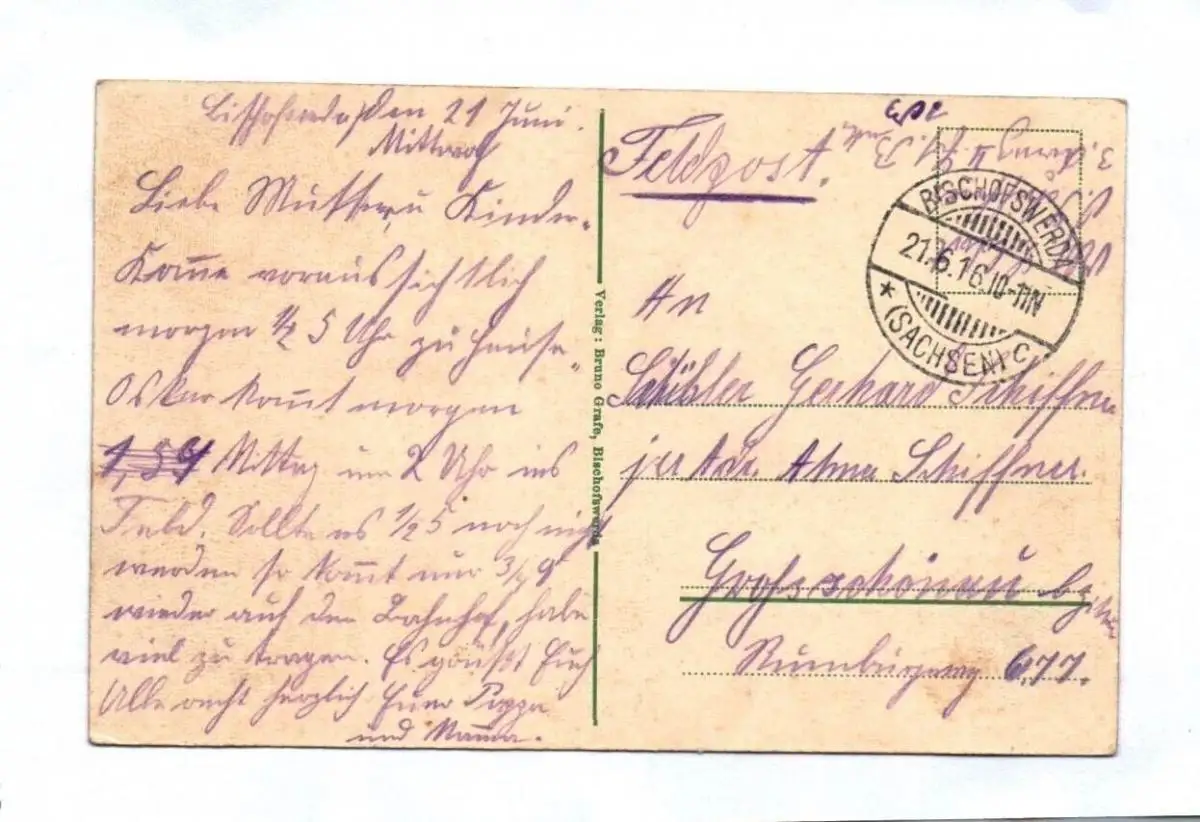 Bischofswerda, den 21 Juni.
Mittwoch
Liebe Mutter u Kinder-
Kom̅e voraussichtlich
morgen ½ 5 Uhr zu Hause.
Oskar kom̅t morgen
Mittag um 2 Uhr ins
Feld. Sollte es ½5 noch nicht
werden so kom̅t nur ¾ 9
wieder auf den Bahnhof, habe
viel zu tragen. Es grüßt Euch
Alle recht herzlich Euer Pappa
und Mam̅a.
Feldpost.
BISCHOFSWERDA
21.6.16.10-11N
* (SACHSEN) C
An
Schüler Gerhard Schiffner
per Adr. Alma Schiffner.
Grossschönau b/Zittau
Rumburgerweg 677.
Verlag: Bruno Grafe, Bischofswerda